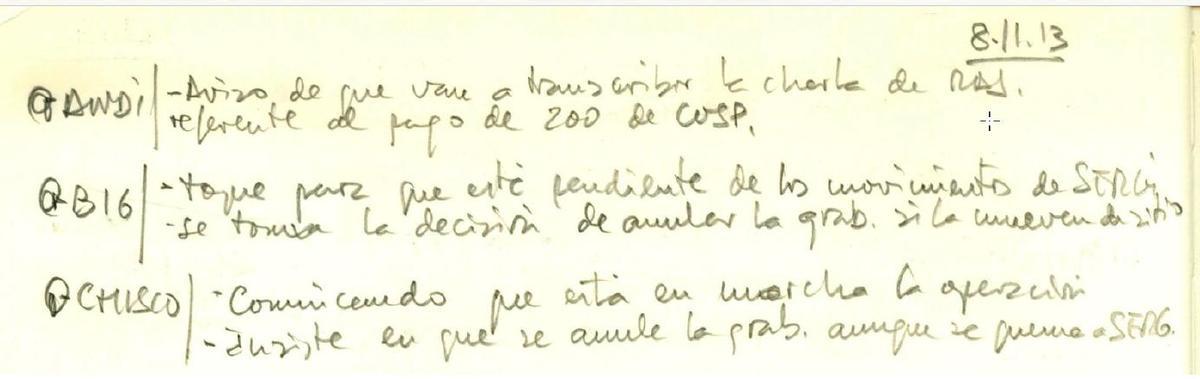 8.11.13
ANDI | - Aviso de que van a transcribir la charla de RAJ.
referente al pago de 200 de COSP.
BIG | - toque para que esté pendiente de los movimientos de SERG
- se toma la decisión de anular la grab. si la mueven de sitio
CHISCO | - Comunicando que está en marcha la operación
- Insiste en que se anule la grab. aunque se queme a SERG.